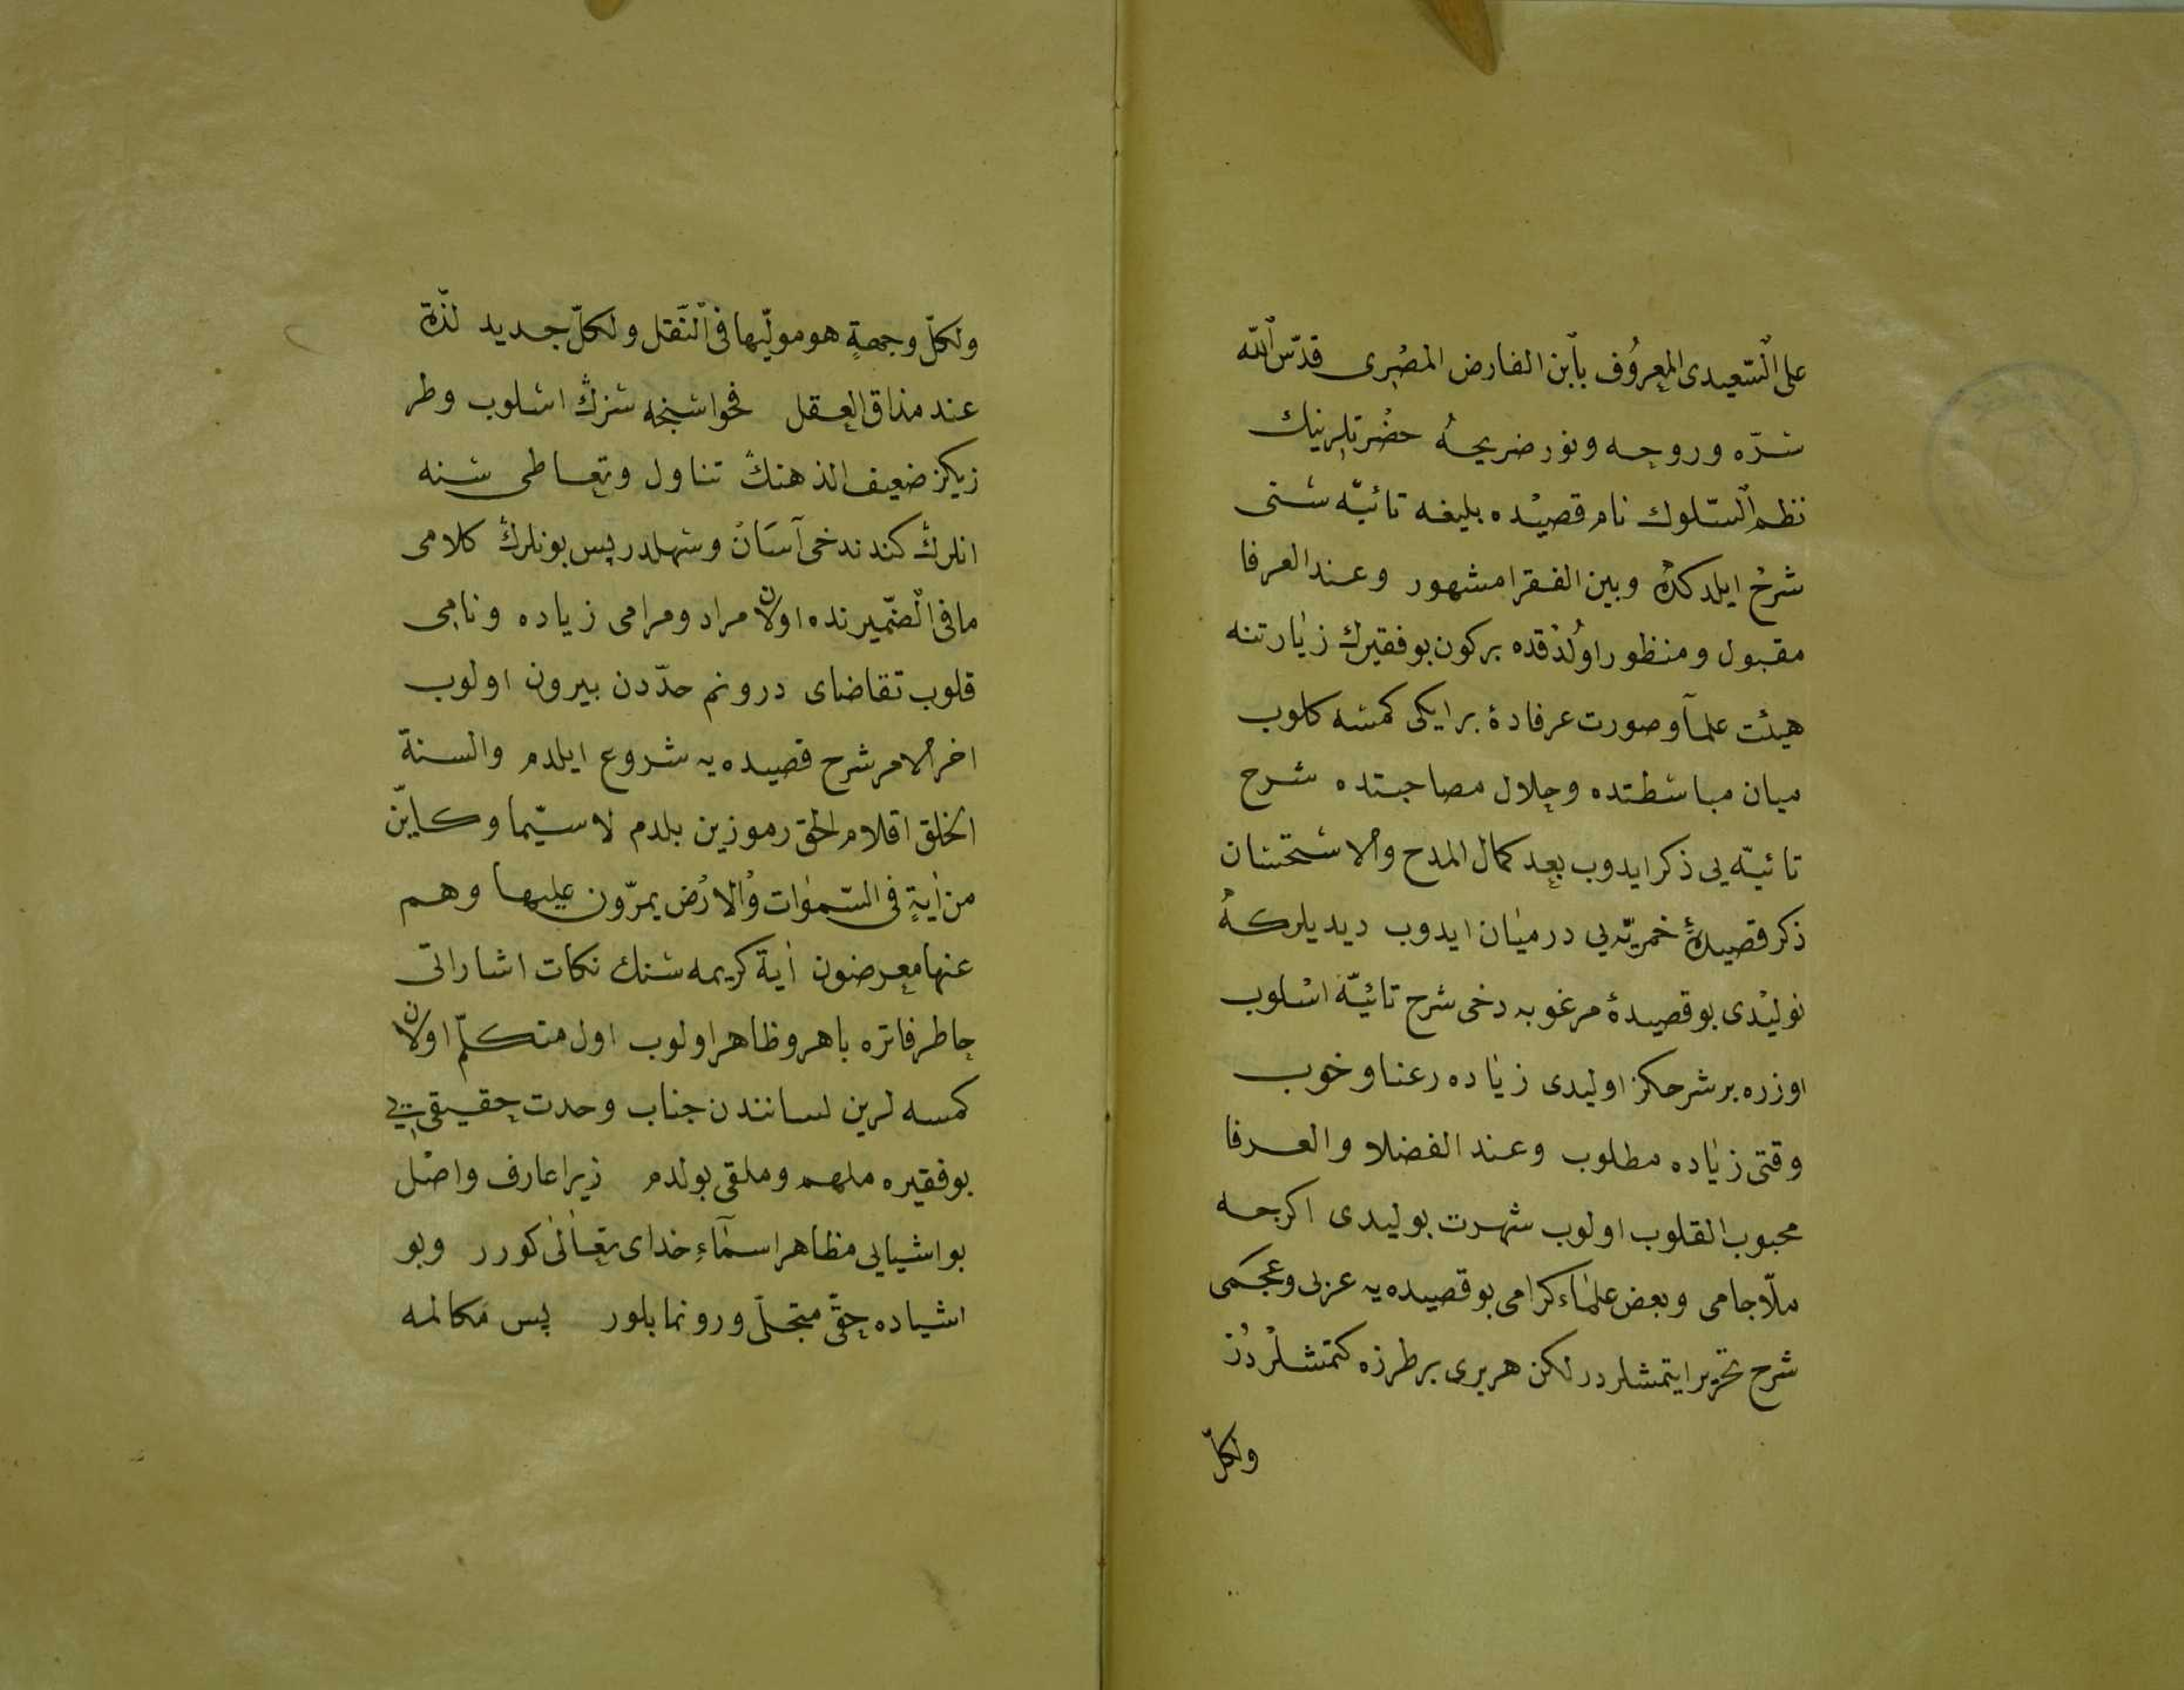 علی السّعیدی المعروُف بابن الفارض المصْری قدّس اللّه
سرّه وروحه ونور ضریحهُ حضْرتلرینك
نظم السّلوك نام قصیْده بلیغه تائیّه سنی
شرحْ ایلدكدهْ وبین الفقرا مشهور وعند العرفا
مقبول ومنظور اوُلدقده بركون بو فقیرك زیارتنه
هیئت علمآ وصورت عرفادهٔ بر ایكی كمسه كلوب
میان مباسطتده وخلال مصاحبتده شرح
تائیّه یی ذكر ایدوب بعد كمال المدح والاستحسان
ذكر قصیدهٔ خمریّه یی درمیان ایدوب دیدیلركهْ
نولیْدی بو قصیدهٔ مرغوبه دخی شرح تائیّه اسْلوب
اوزره بر شرحكز اولیدی زیاده رعنا وخوب
وقتی زیاده مطلوب وعند الفضلا والعرفا
محبوب القلوب اولوب شهرت بولیدی اكرجه
ملّا جامی وبعض علماء كرامی بو قصیده یه عربی وعجمی
شرح تحریر ایتمشلردر لكن هربری بر طرزه كتمشلرْدُرْ
ولكلّ
ولكلّ وجهةٍ هو مولّیها فی النّقل ولكلّ جدید لذّة
عند مذاق العقل فحواسنجه سزڭ اسلوب وطر
زیكز ضعیف الذهنڭ تناول وتعاطی سنه
انلرڭ كندندخی آسَانْ وسهلدر پس بونلرڭ كلامی
مافی الضّمیرنده اولان مراد ومرامی زیاده ونامی
قلوب تقاضای درونم حدّدن بیرون اولوب
اخر الامر شرح قصیده یه شروع ایلدم والسنة
الخلق اقلام الحق رموزین بلدم لا سیّما وكایّن
من اٰیةٍ فی السّمٰوات والارْض یمرّون علیها وهم
عنها معرضون اٰیة كریمه سنڭ نكات اشاراتی
خاطر فاتره باهر وظاهر اولوب اول متكلّم اولان
كمسه لرین لسانندن جناب وحدت حقیقی یی
بو فقیره ملهم وملقی بولدم زیرا عارف واصْل
بو اشیایی مظاهر اسمآءِ خدای تعٰالیٰ كورر وبو
اشیاده حقّی متجلّی ورونما بلور پس مكالمه